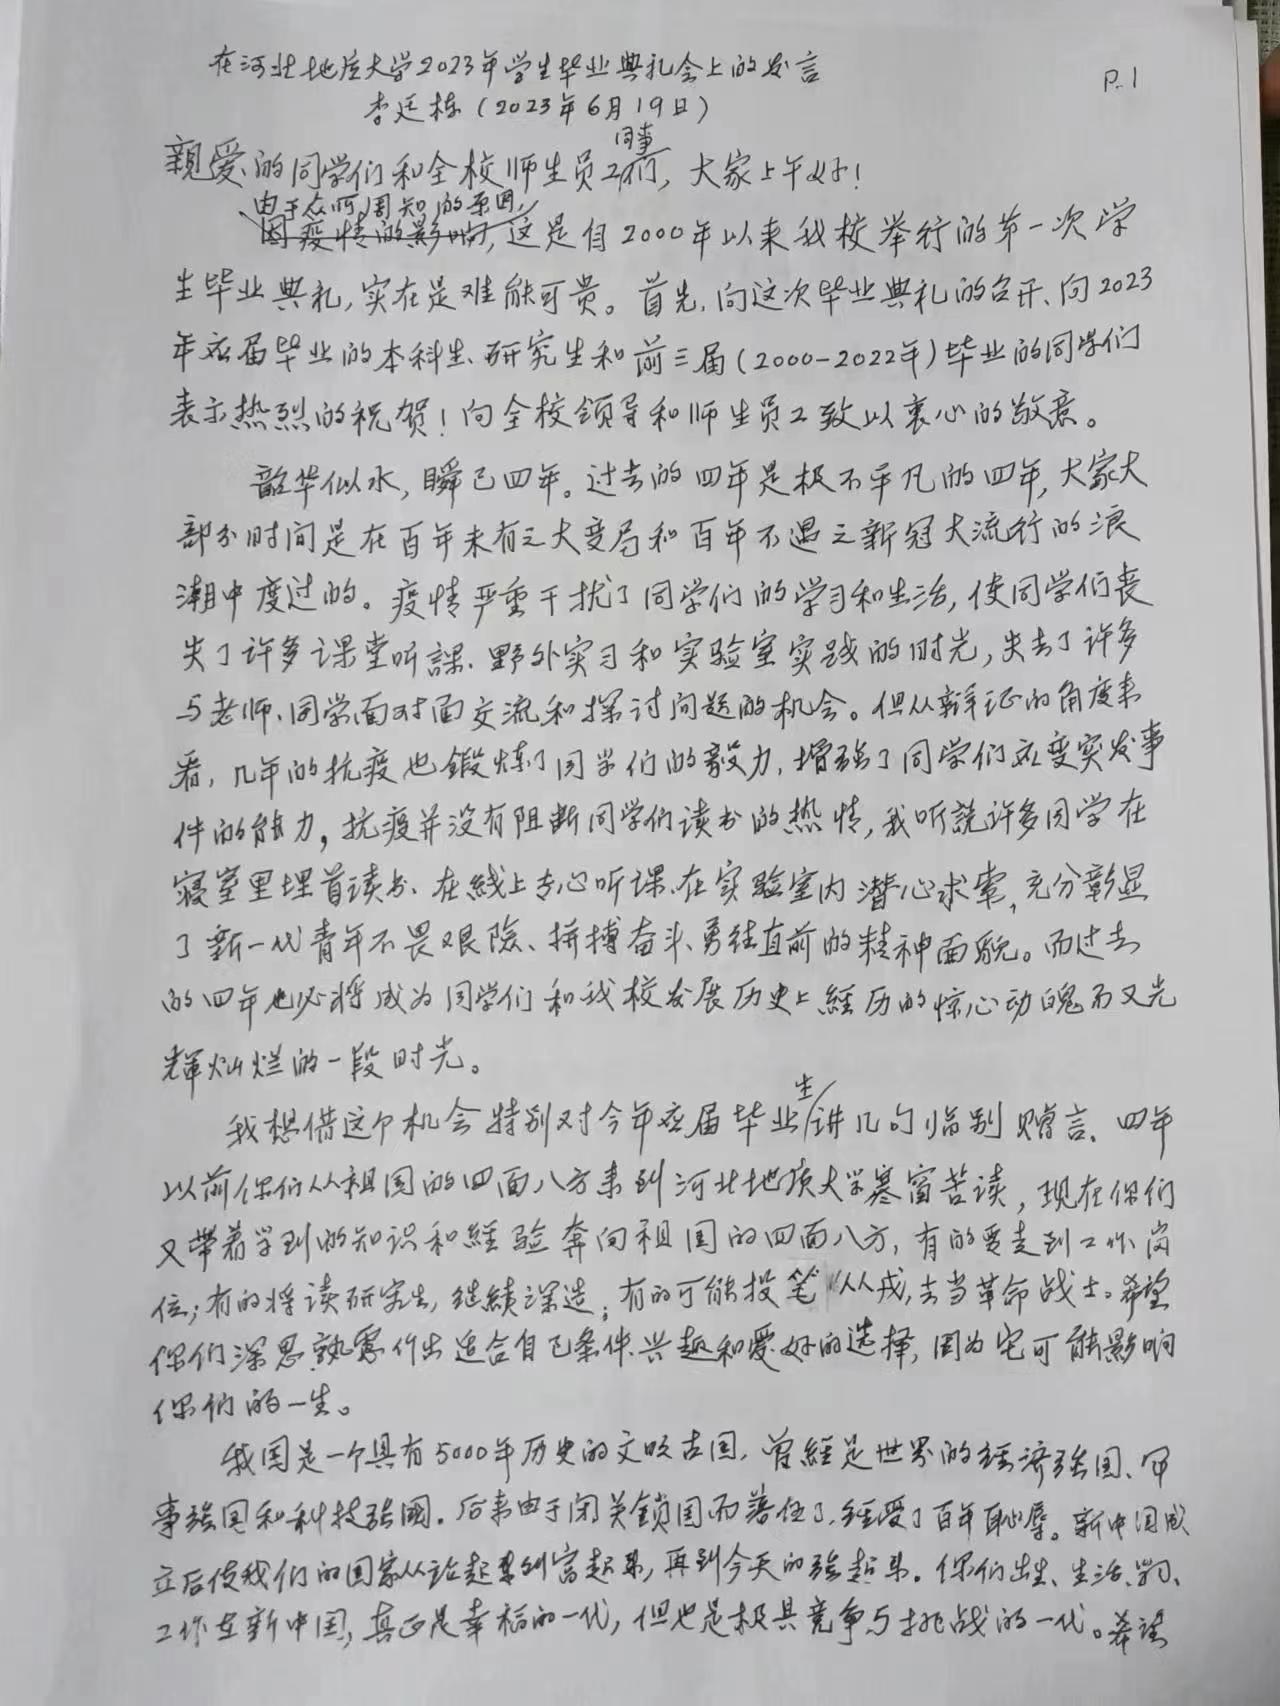 在河北地质大学2023年学生毕业典礼会上的发言
P.1
李廷栋(2023年6月19日)
親爱的同学们和全校师生员工同事们,大家上午好!
由于众所周知的原因,
因疫情的影响,这是自2000年以来我校举行的第一次学
生毕业典礼,实在是难能可贵。首先,向这次毕业典礼的召开、向2023
年应届毕业的本科生、研究生和前三届(2000-2022年)毕业的同学们
表示热烈的祝贺!向全校领导和师生员工致以衷心的敬意。
韶华似水,瞬已四年。过去的四年是极不平凡的四年,大家大
部分时间是在百年未有之大变局和百年不遇之新冠大流行的浪
潮中度过的。疫情严重干扰了同学们的学习和生活,使同学们丧
失了许多课堂听課、野外实习和实验室实践的时光,失去了许多
与老师、同学面对面交流和探讨问题的机会。但从辩证的角度来
看,几年的抗疫也鍛炼了同学们的毅力,增强了同学们应变突发事
件的能力。抗疫并没有阻断同学们读书的热情,我听說许多同学在
寝室里埋首读书、在线上专心听课、在实验室内潜心求索,充分彰显
了新一代青年不畏艰险、拼搏奋斗、勇往直前的精神面貌。而过去
的四年也必将成为同学们和我校发展历史上經历的惊心动魄而又光
輝灿烂的一段时光。
我想借这个机会特别对今年应届毕业生讲几句临别赠言。四年
以前你们从祖国的四面八方来到河北地质大学寒窗苦读,现在你们
又带着学到的知识和經验奔向祖国的四面八方,有的要走到工作岗
位;有的将读研究生,继续深造;有的可能投笔从戎,去当革命战士。希望
你们深思熟虑作出适合自己条件、兴趣和爱好的选择,因为它可能影响
你们的一生。
我国是一个具有5000年历史的文明古国,曾經是世界的经济强国、军
事强国和科技强國。后来由于闭关鎖国而落伍了,经受了百年耻辱。新中国成
立后使我们的国家从站起来到富起来,再到今天的强起来。你们出生、生活、学习、
工作在新中国,真正是幸福的一代,但也是极具竞争与挑战的一代。希望